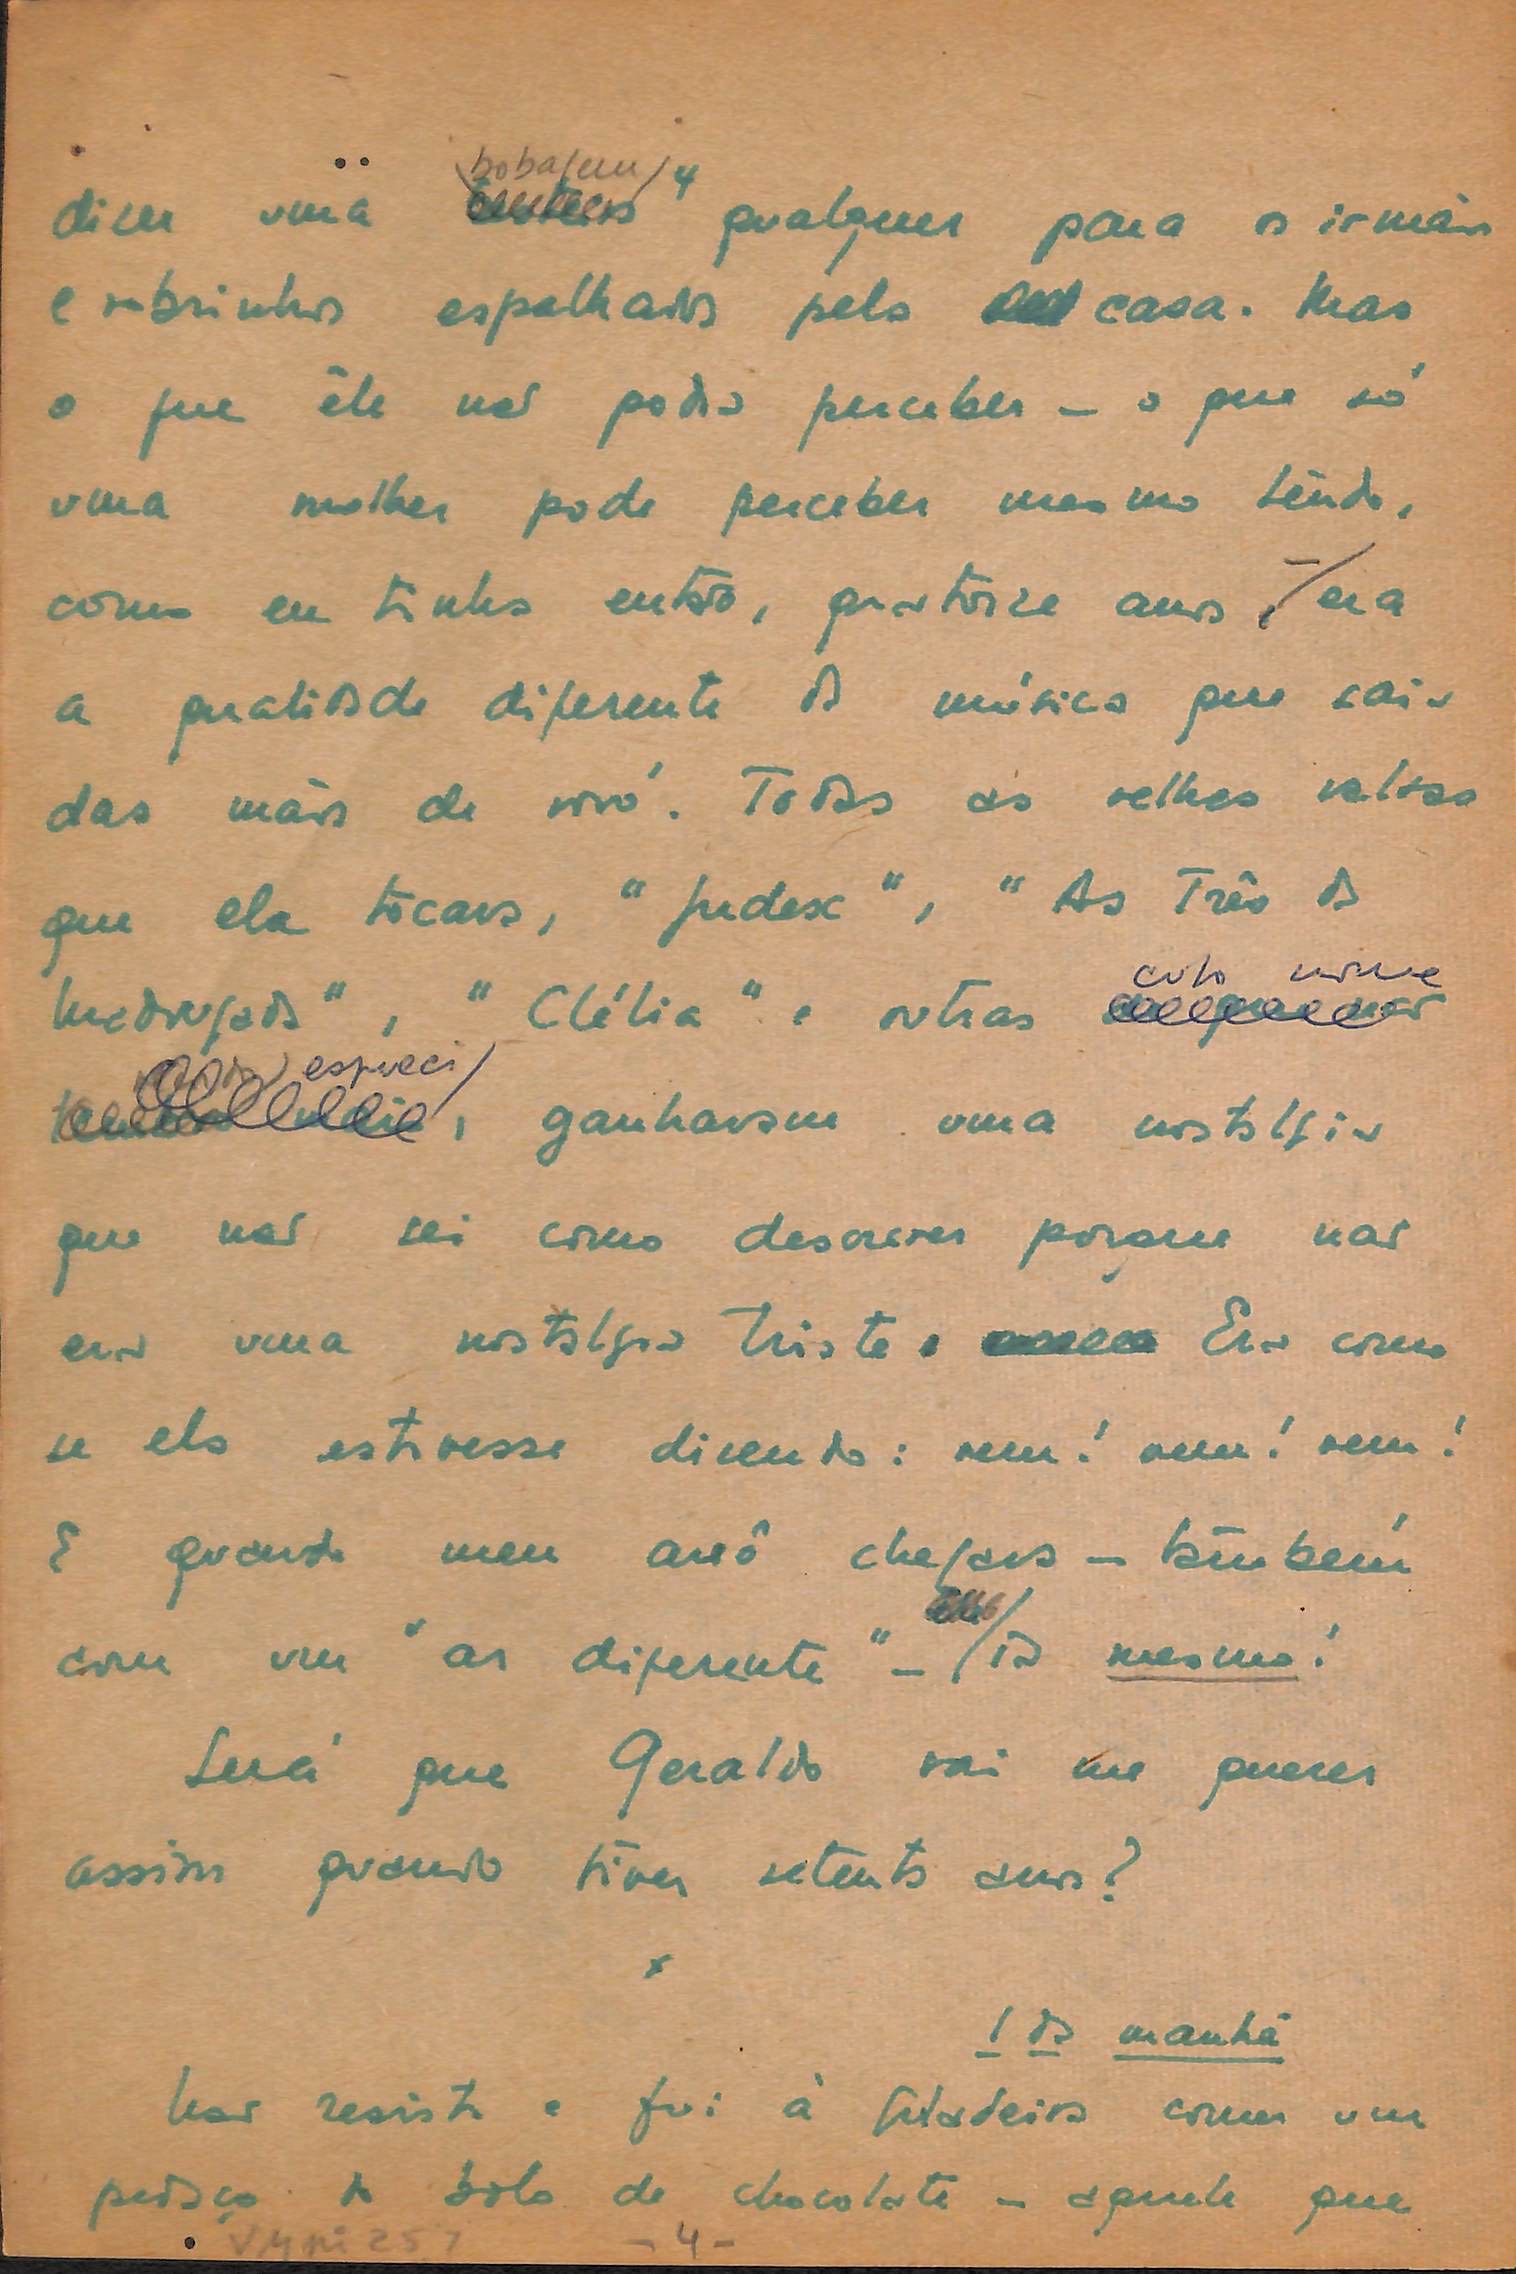 bobajem 4
dizer uma qualquer para os irmãos
e sobrinhos espalhados pela casa. Mas
o que êle não podia perceber — o que só
uma mulher pode perceber mesmo tendo,
como eu tinha então, quatorze anos — era
a qualidade diferente da música que saía
das mãos de vovó. Todas as velhas valsas
que ela tocava, "Judex", "As Três da
cujo nome
Madrugada", "Clélia" e outras
esqueci
, ganhavam uma nostalgia
que não sei como descrever porque não
era uma nostalgia triste. Era como
se ela estivesse dizendo: vem! vem! vem!
E quando meu avô chegava — também
com um "ar diferente" — ia mesmo!
Será que Geraldo vai me querer
assim quando tiver setenta anos?
x
1 da manhã
Não resisti e fui à geladeira comer um
pedaço do bolo de chocolate — aquele que
Vm pi 257 - 4 -